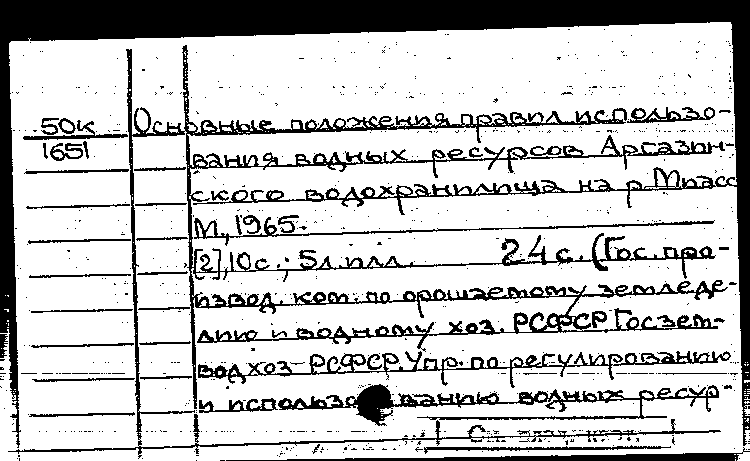 50К Основные положения правил использо-
1651 вания водных ресурсов Аргазин-
ского водохранилища на р. Миасс
М., 1965.
[2], 10 с.; 5 л. илл. 24 с. (Гос. про-
извод. ком. по орошаемому земледе-
лию и водному хоз. РСФСР. Госзем-
водхоз РСФСР. Упр. по регулированию
и использованию водных ресур-
См.